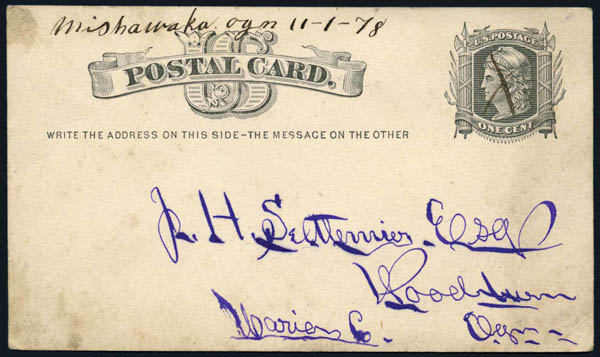 Mishawaka. Ogn 11-1-78
US
POSTAL CARD.
U.S. POSTAGE
ONE CENT
WRITE THE ADDRESS ON THIS SIDE-THE MESSAGE ON THE OTHER
J. H. Settlemier. Esq
Woodburn
Marion Co. Ogn